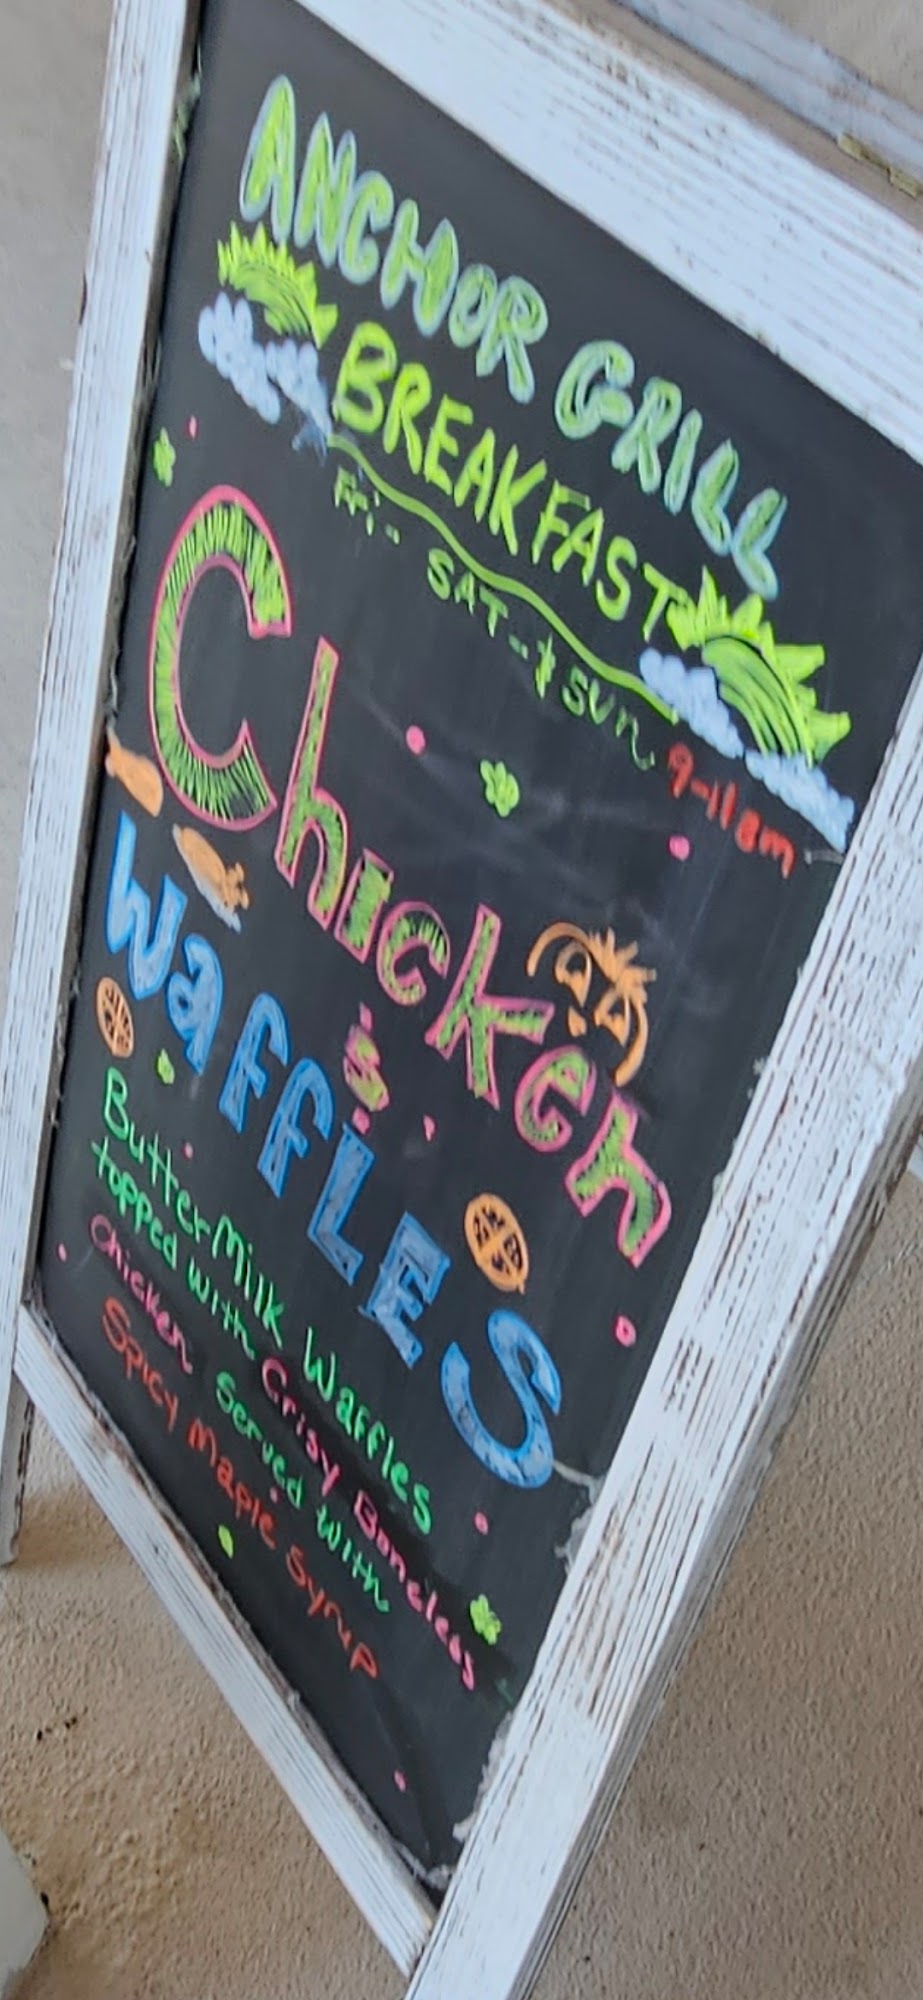 ANCHOR GRILL
BREAKFAST
Fri - SAT - & SUN
9-11am
Chicken
&
WaffLES
ButterMilk Waffles
topped with Crisy Boneless
Chicken Served with
Spicy Maple Syrup